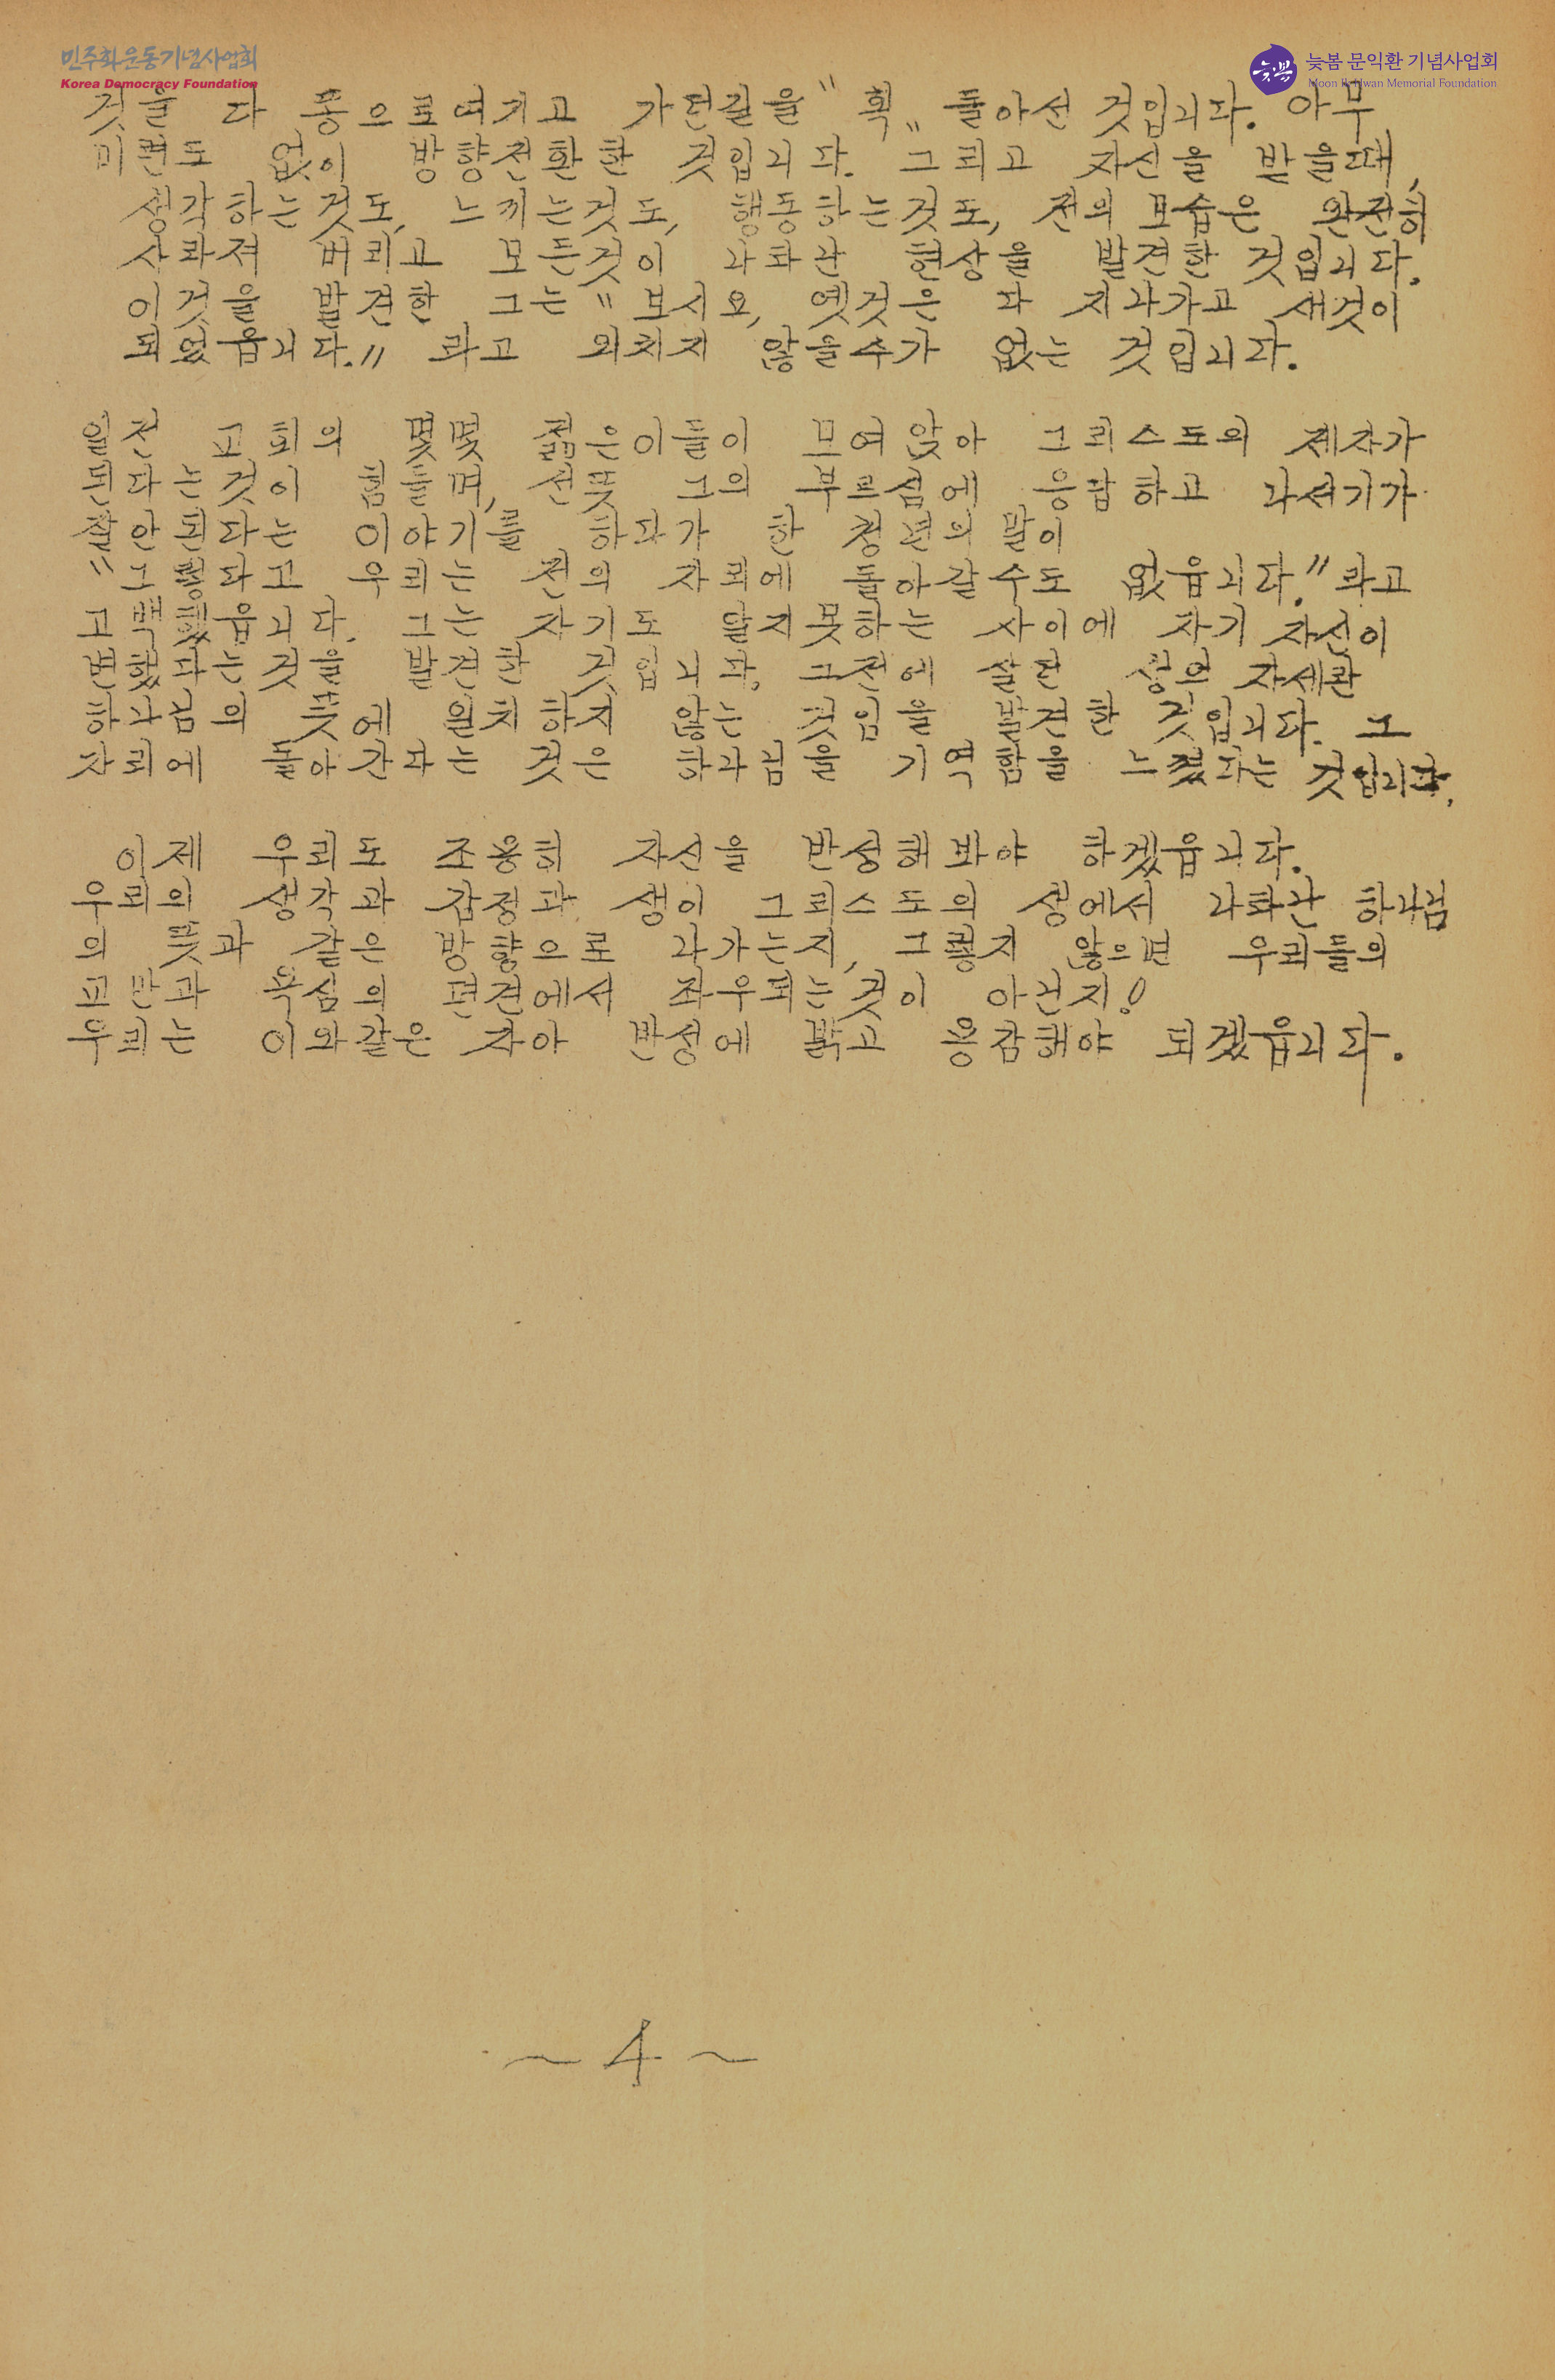 민주화운동기념사업회
Korea Democracy Foundation
늦봄
늦봄 문익환 기념사업회
Moon Ik-Hwan Memorial Foundation
것을 다 똥으로여기고 가던길을 "획" 돌아선 것입니다. 아무
미련도 없이 방향전환한 것입니다. 그리고 자신을 발을때,
생각하는것도, 느끼는것도, 행동하는것도, 전의 모습은 완전히
사라져 버리고 모든것이 나타난 현상을 발견한 것입니다.
이것을 발견한 그는 "보시요, 옛것은 다 지나가고 새것이
되었읍니다." 라고 외치지 않을수가 없는 것입니다.
일전 교회의 몇몇 젊은이들이 모여앉아 그리스도의 제자가
된다는것이 힘들며, 선뜻 그의 부르심에 응답하고 나서기가
잘안된다는 이야기를 하다가 한 청년의 말이
"그렇다고 우리는 전의 자리에 돌아갈수도 없읍니다." 라고
고백했읍니다. 그는 자기도 알지못하는 사이에 자기 자신이
변했다는것을 발견한 것입니다. 그전에 살던 생의 자세란
하나님의 뜻에 일치하지 않는 것임을 발견한 것입니다. 그
자리에 돌아간다는 것은 하나님을 기역함을 느꼈다는 것입니다.
이제 우리도 조용히 자신을 반성해봐야 하겠읍니다.
우리의 생각과 감정과 생이 그리스도의 생에서 나타난 하나님
의 뜻과 같은 방향으로 나가는지, 그렇지 않으면 우리들의
교만과 욕심의 편견에서 좌우되는것이 아닌지!
우리는 이와같은 자아 반성에 밝고 용감해야 되겠읍니다.
~ 4 ~